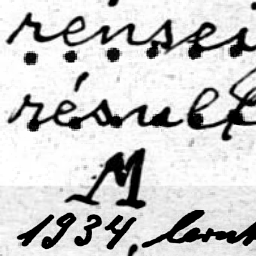 rensei
résult
M
1934,